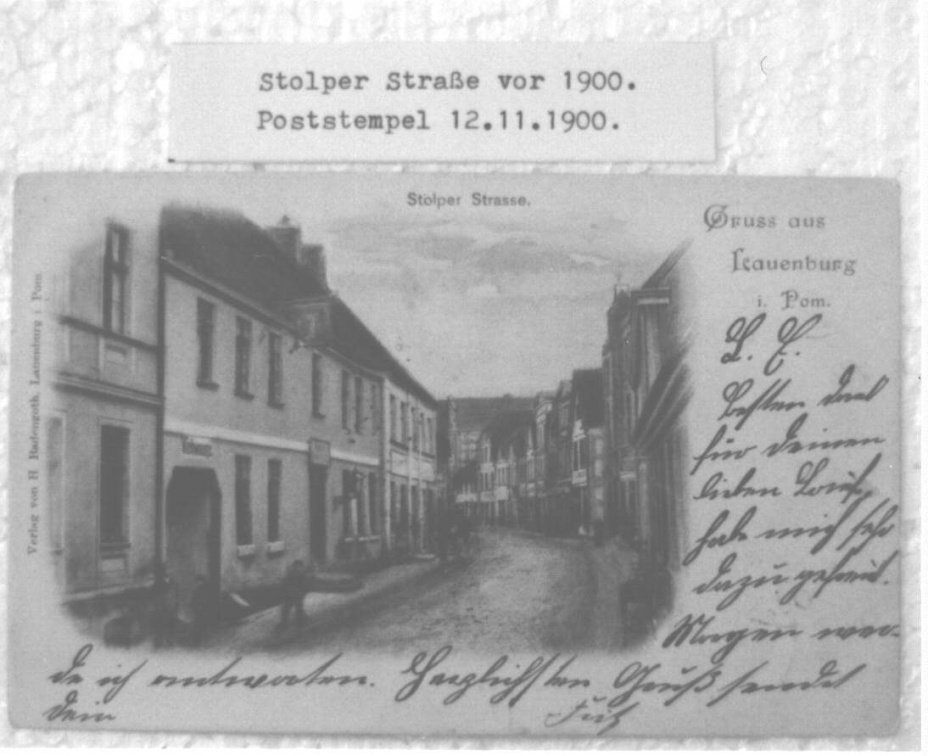 Stolper Straße vor 1900.
Poststempel 12.11.1900.
Stolper Strasse.
Gruss aus
Lauenburg
i. Pom.
Verlag von H Badengoth, Lauenburg i Pom.
L. E.
Besten Dank
für Deinen
lieben Brief,
habe mich sehr
dazu gefreut.
Morgen wer-
de ich antworten. Herzlichsten Gruß sendet
Dein